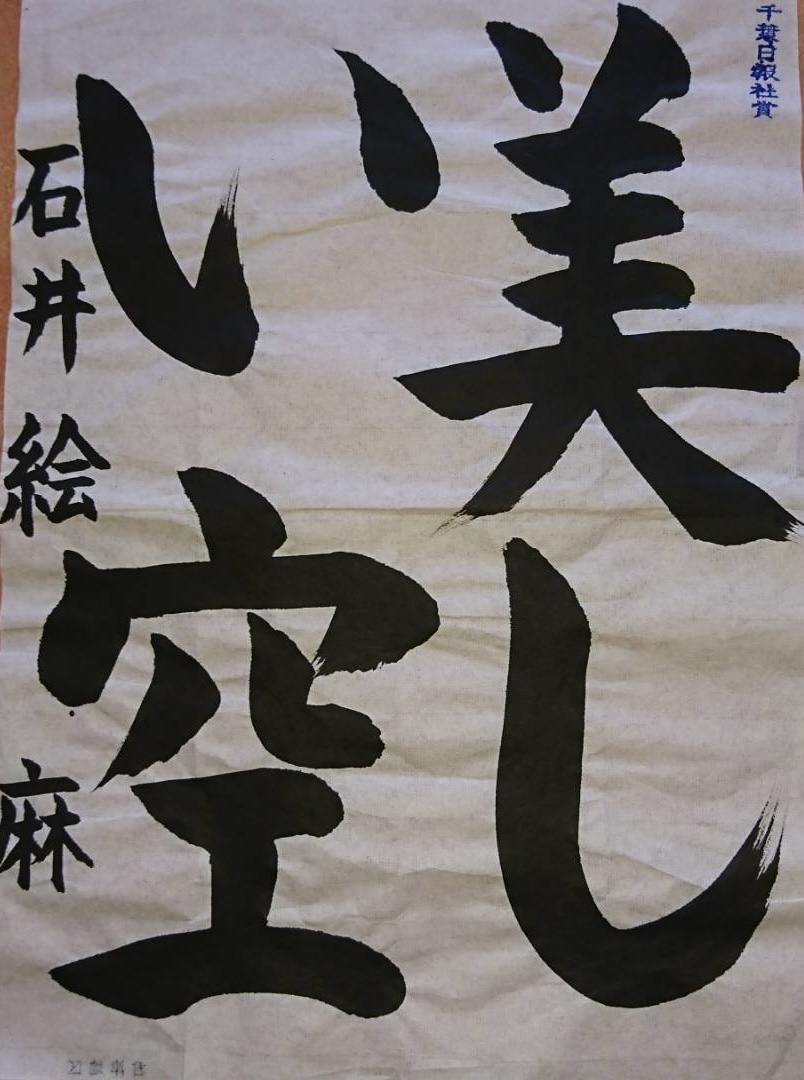 千葉日報社賞
美し
い空
石井絵麻